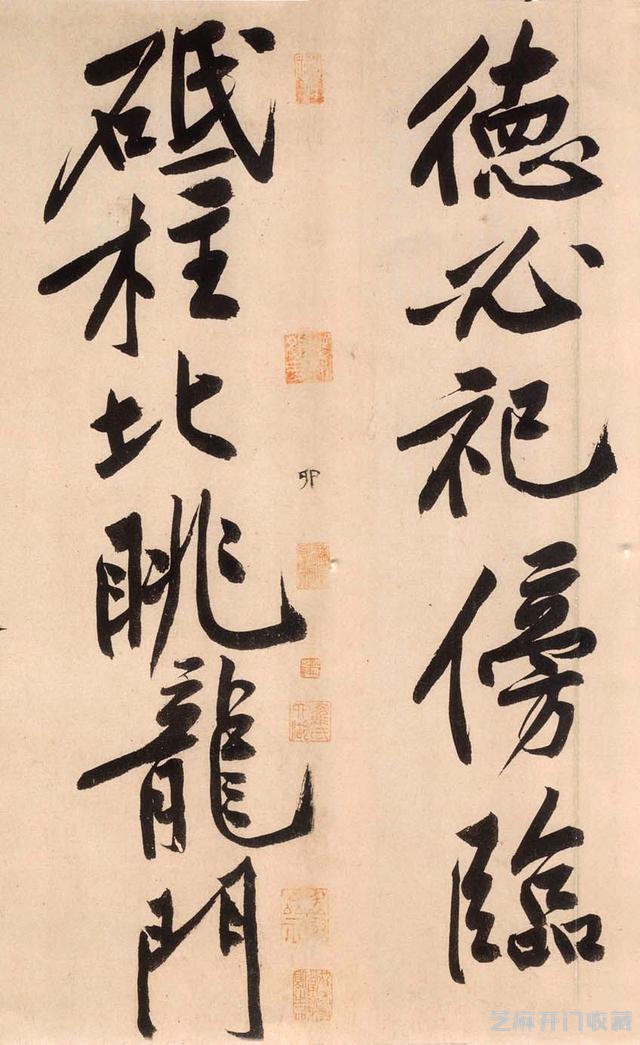 德必祀傍臨
砥柱北眺龍門
卯
芝麻开门收藏